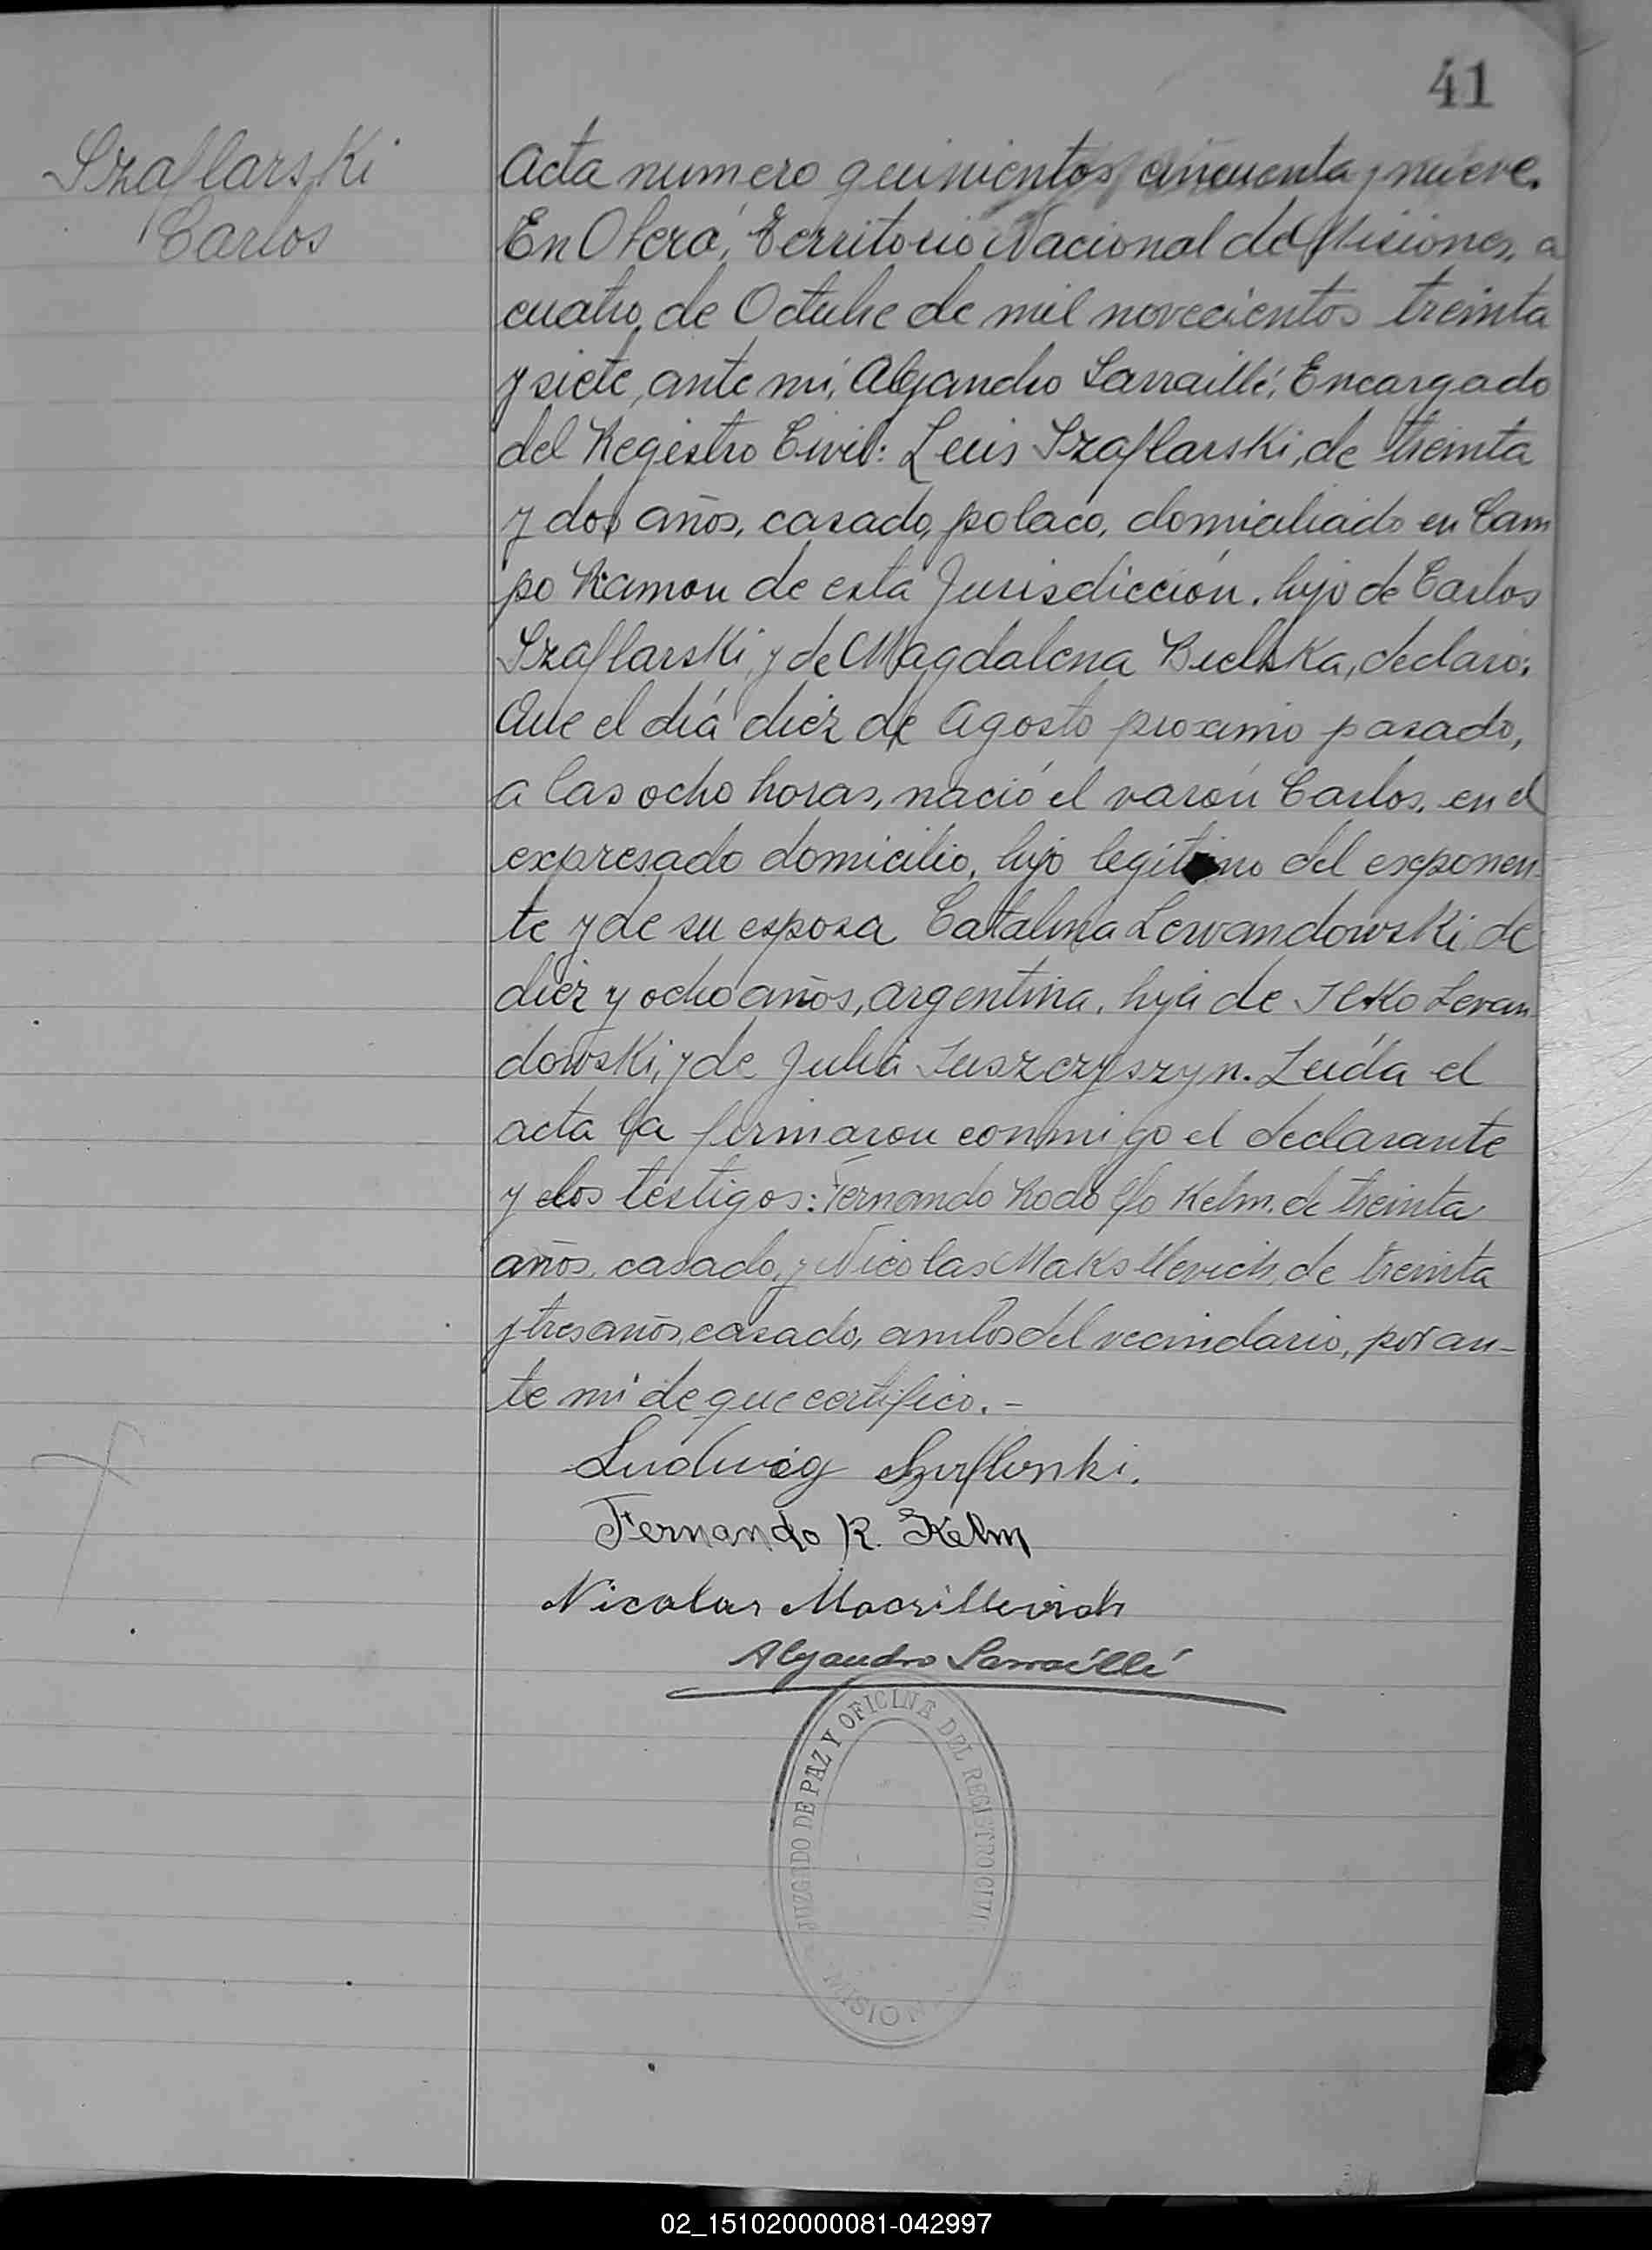 41
Szaflarski
Carlos
Acta numero quinientos cincuenta y nueve.
En Oberá, Territorio Nacional de Misiones, a
cuatro de Octubre de mil novecientos treinta
y siete, ante mi, Alejandro Larraillé, Encargado
del Registro Civil: Luis Szaflarski, de treinta
y dos años, casado, polaco, domiciliado en Cam
po Ramon de esta Jurisdicción, hijo de Carlos
Szaflarski, y de Magdalena Bielska, declaró:
Que el día diez de Agosto proximo pasado,
a las ocho horas, nació el varón Carlos, en el
expresado domicilio, hijo legitimo del exponen-
te y de su esposa Catalina Lewandowski, de
diez y ocho años, argentina, hija de Ilko Levan
dowski, y de Julia Juszczyszyn. Leída el
acta la firmaron conmigo el declarante
y los testigos: Fernando Rodolfo Kelm, de treinta
años, casado, y Nicolas Maksllevich, de treinta
y tres años, casado, ambos del vecindario, por an-
te mi de que certifico.-
Ludwig Szaflarski.
Fernando R. Kelm
Nicolas
Alejandro Larraillé
JUZGADO DE PAZ Y OFICINA DEL REGISTRO CIVIL
MISION
02_151020000081-042997